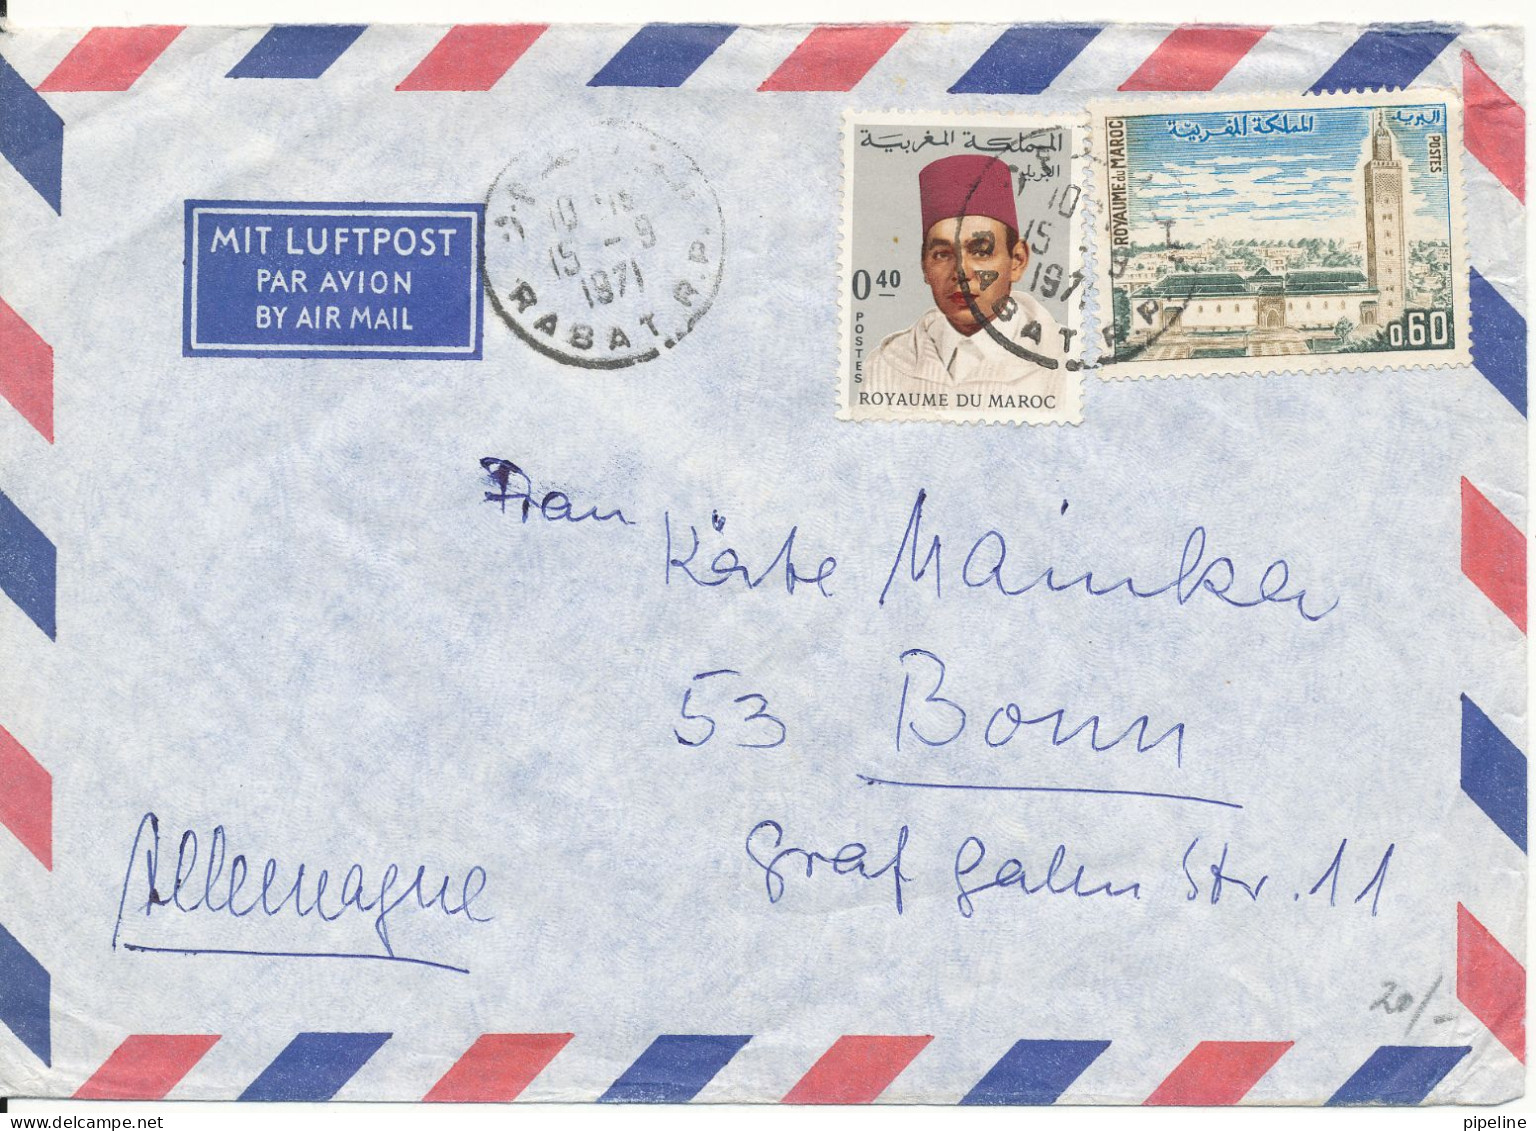 MIT LUFTPOST
PAR AVION
BY AIR MAIL
15 -9
1971
RABAT R.P.
المملكة المغربية
البريد
0,40
POSTES
ROYAUME DU MAROC
15
1971
RABAT R.P.
المملكة المغربية
البريد
POSTES
ROYAUME DU MAROC
0,60
Frau
Käthe Mainka
53 Bonn
Graf Galen Str. 11
Allemagne
20/-
pipeline